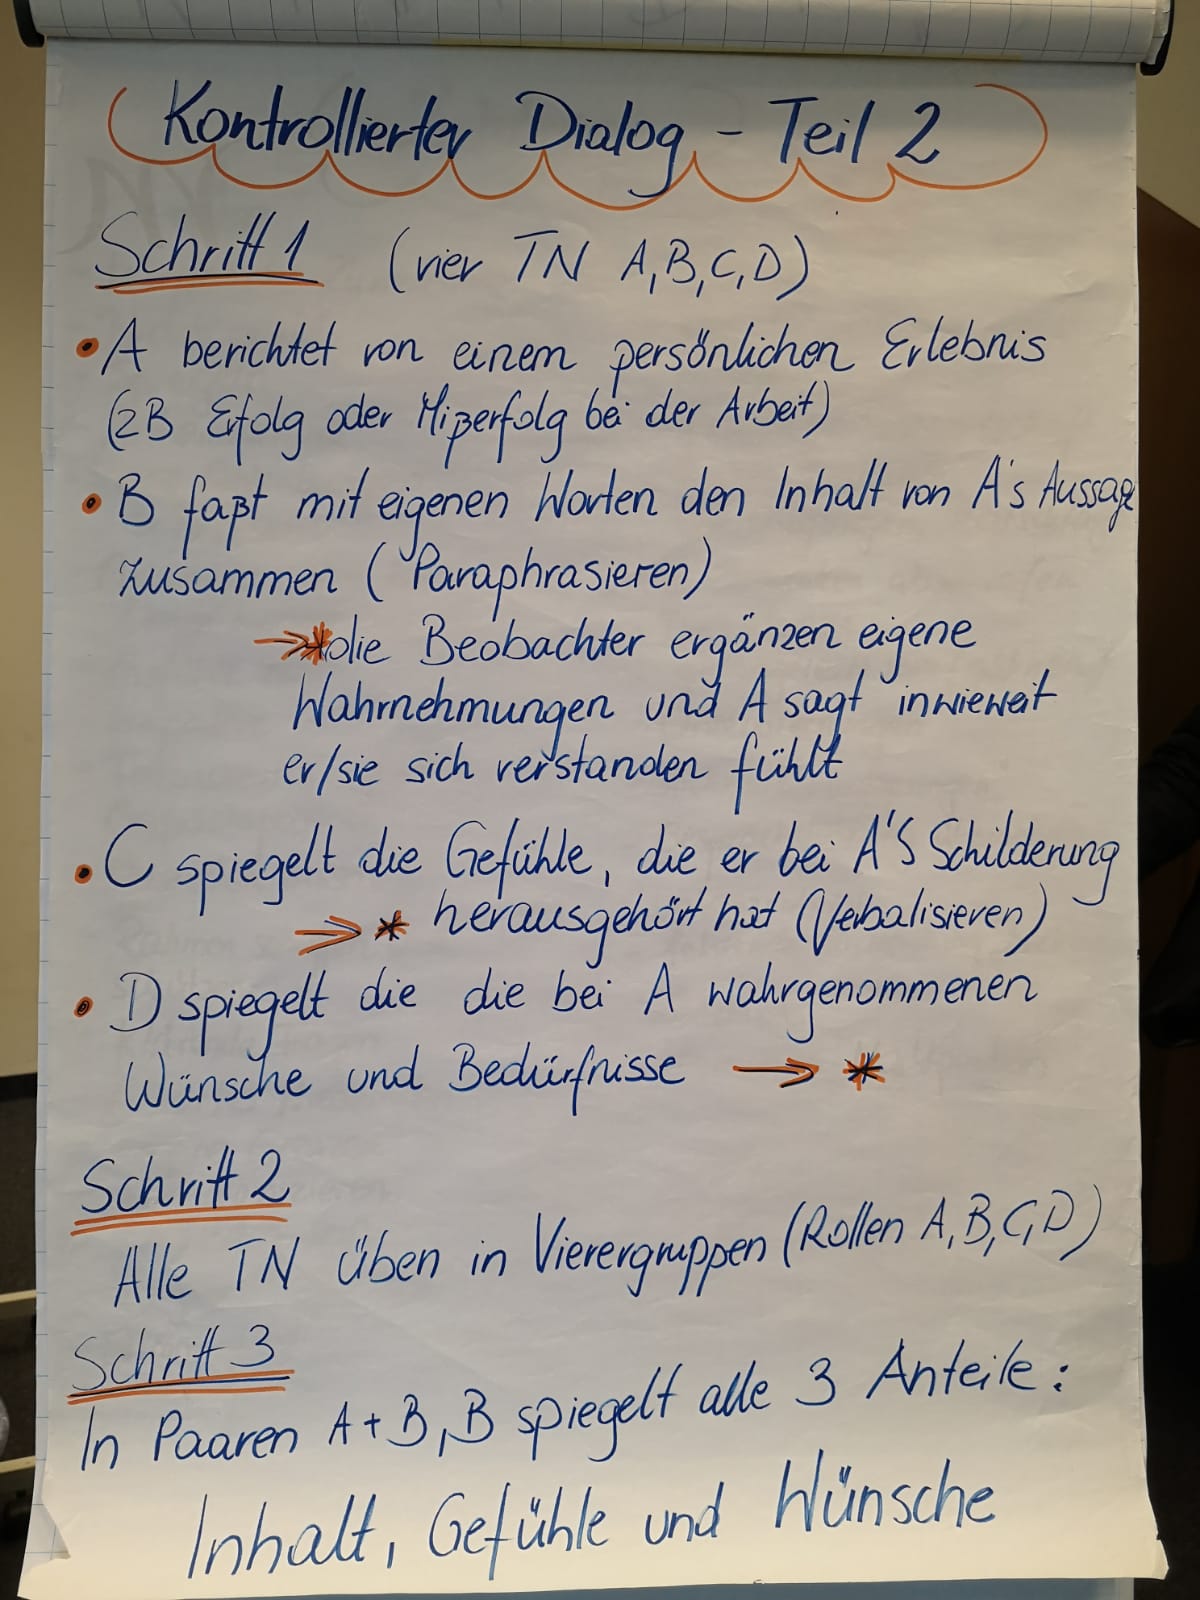 Kontrollierter Dialog - Teil 2
Schritt 1 (vier TN A,B,C,D)
• A berichtet von einem persönlichen Erlebnis
(zB Erfolg oder Mißerfolg bei der Arbeit)
• B faßt mit eigenen Worten den Inhalt von A's Aussage
zusammen (Paraphrasieren)
→ * die Beobachter ergänzen eigene
Wahrnehmungen und A sagt inwieweit
er/sie sich verstanden fühlt
• C spiegelt die Gefühle, die er bei A'S Schilderung
⇒ * herausgehört hat (Verbalisieren)
• D spiegelt die die bei A wahrgenommenen
Wünsche und Bedürfnisse → *
Schritt 2
Alle TN üben in Vierergruppen (Rollen A,B,C,D)
Schritt 3
In Paaren A+B, B spiegelt alle 3 Anteile:
Inhalt, Gefühle und Wünsche